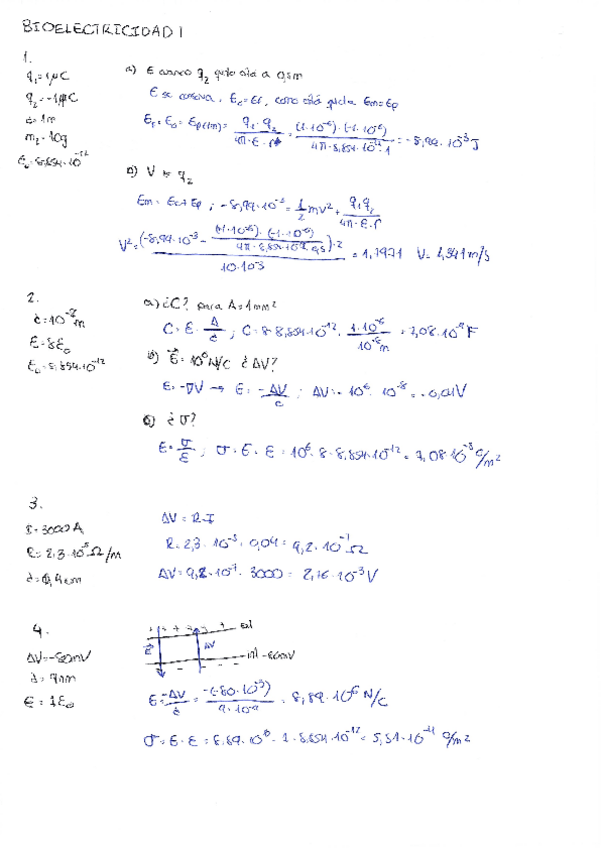 BIOELECTRICIDAD 1
1.
q₁=1μC
q₂=-1μC
d=1m
m₂=10g
ε₀=8,854·10⁻¹²
a) E cuando q₂ está a 0,5m
E se conserva, E₀=Ef, como está quieta Em=Ep
Ef=E₀=Ep(1m)= q₁·q₂/4π·ε·r = (1·10⁻⁶)·(-1·10⁻⁶)/4π·8,854·10⁻¹²·1 = -8,99·10⁻³ J
b) V q₂
Em=Ec+Ep; -8,99·10⁻³ = 1/2 mv² + q₁q₂/4π·ε·r
V²= (-8,99·10⁻³ - (1·10⁻⁶)·(-1·10⁻⁶)/4π·8,854·10⁻¹²·0,5)·2/10·10⁻³ = 1,7971 V= 1,341 m/s
2.
d=10⁻⁸m
ε=8ε₀
ε₀=8,854·10⁻¹²
a) ¿C? para A=1mm²
C=ε·A/d; C=8·8,854·10⁻¹²·1·10⁻⁶/10⁻⁸m = 7,08·10⁻⁹ F
b) E=10⁶N/C ¿ΔV?
E=-∇V → E=-ΔV/d; ΔV=-10⁶·10⁻⁸=-0,01V
¿σ?
E=σ/ε; σ=E·ε=10⁶·8·8,854·10⁻¹²=7,08·10⁻⁵ C/m²
3.
I=3000A
R=2,3·10⁻⁵Ω/m
d=4cm
ΔV=R·I
R=2,3·10⁻⁵·0,04=9,2·10⁻⁷Ω
ΔV=9,2·10⁻⁷·3000=2,76·10⁻³V
4.
ΔV=-80mV
d=9nm
ε=7ε₀
Ext
E
ΔV
int -80mV
E=-ΔV/d = -(-80·10⁻³)/9·10⁻⁹ = 8,89·10⁶ N/C
σ=E·ε=8,89·10⁶·7·8,854·10⁻¹²=5,51·10⁻⁴ C/m²